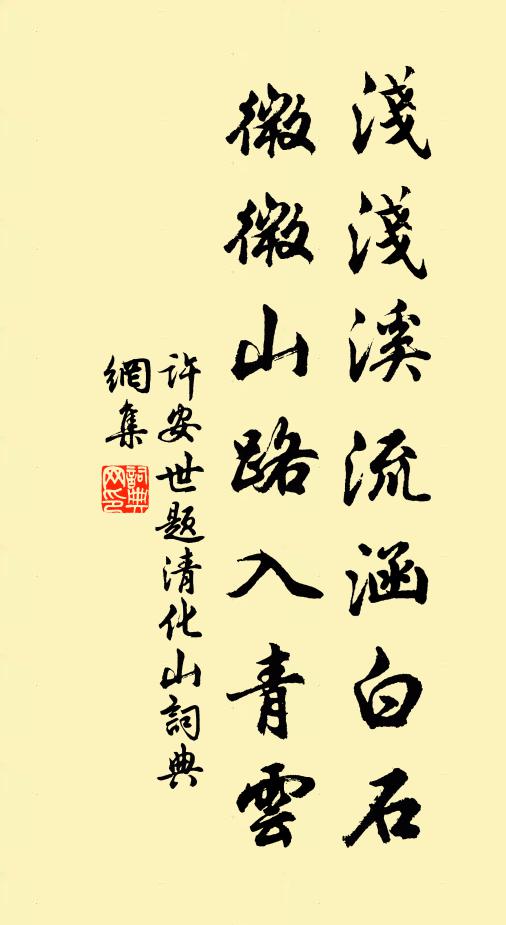 淺淺溪流涵白石
微微山路入青雲
许安世题清化山詞典
網集
詞典
网印